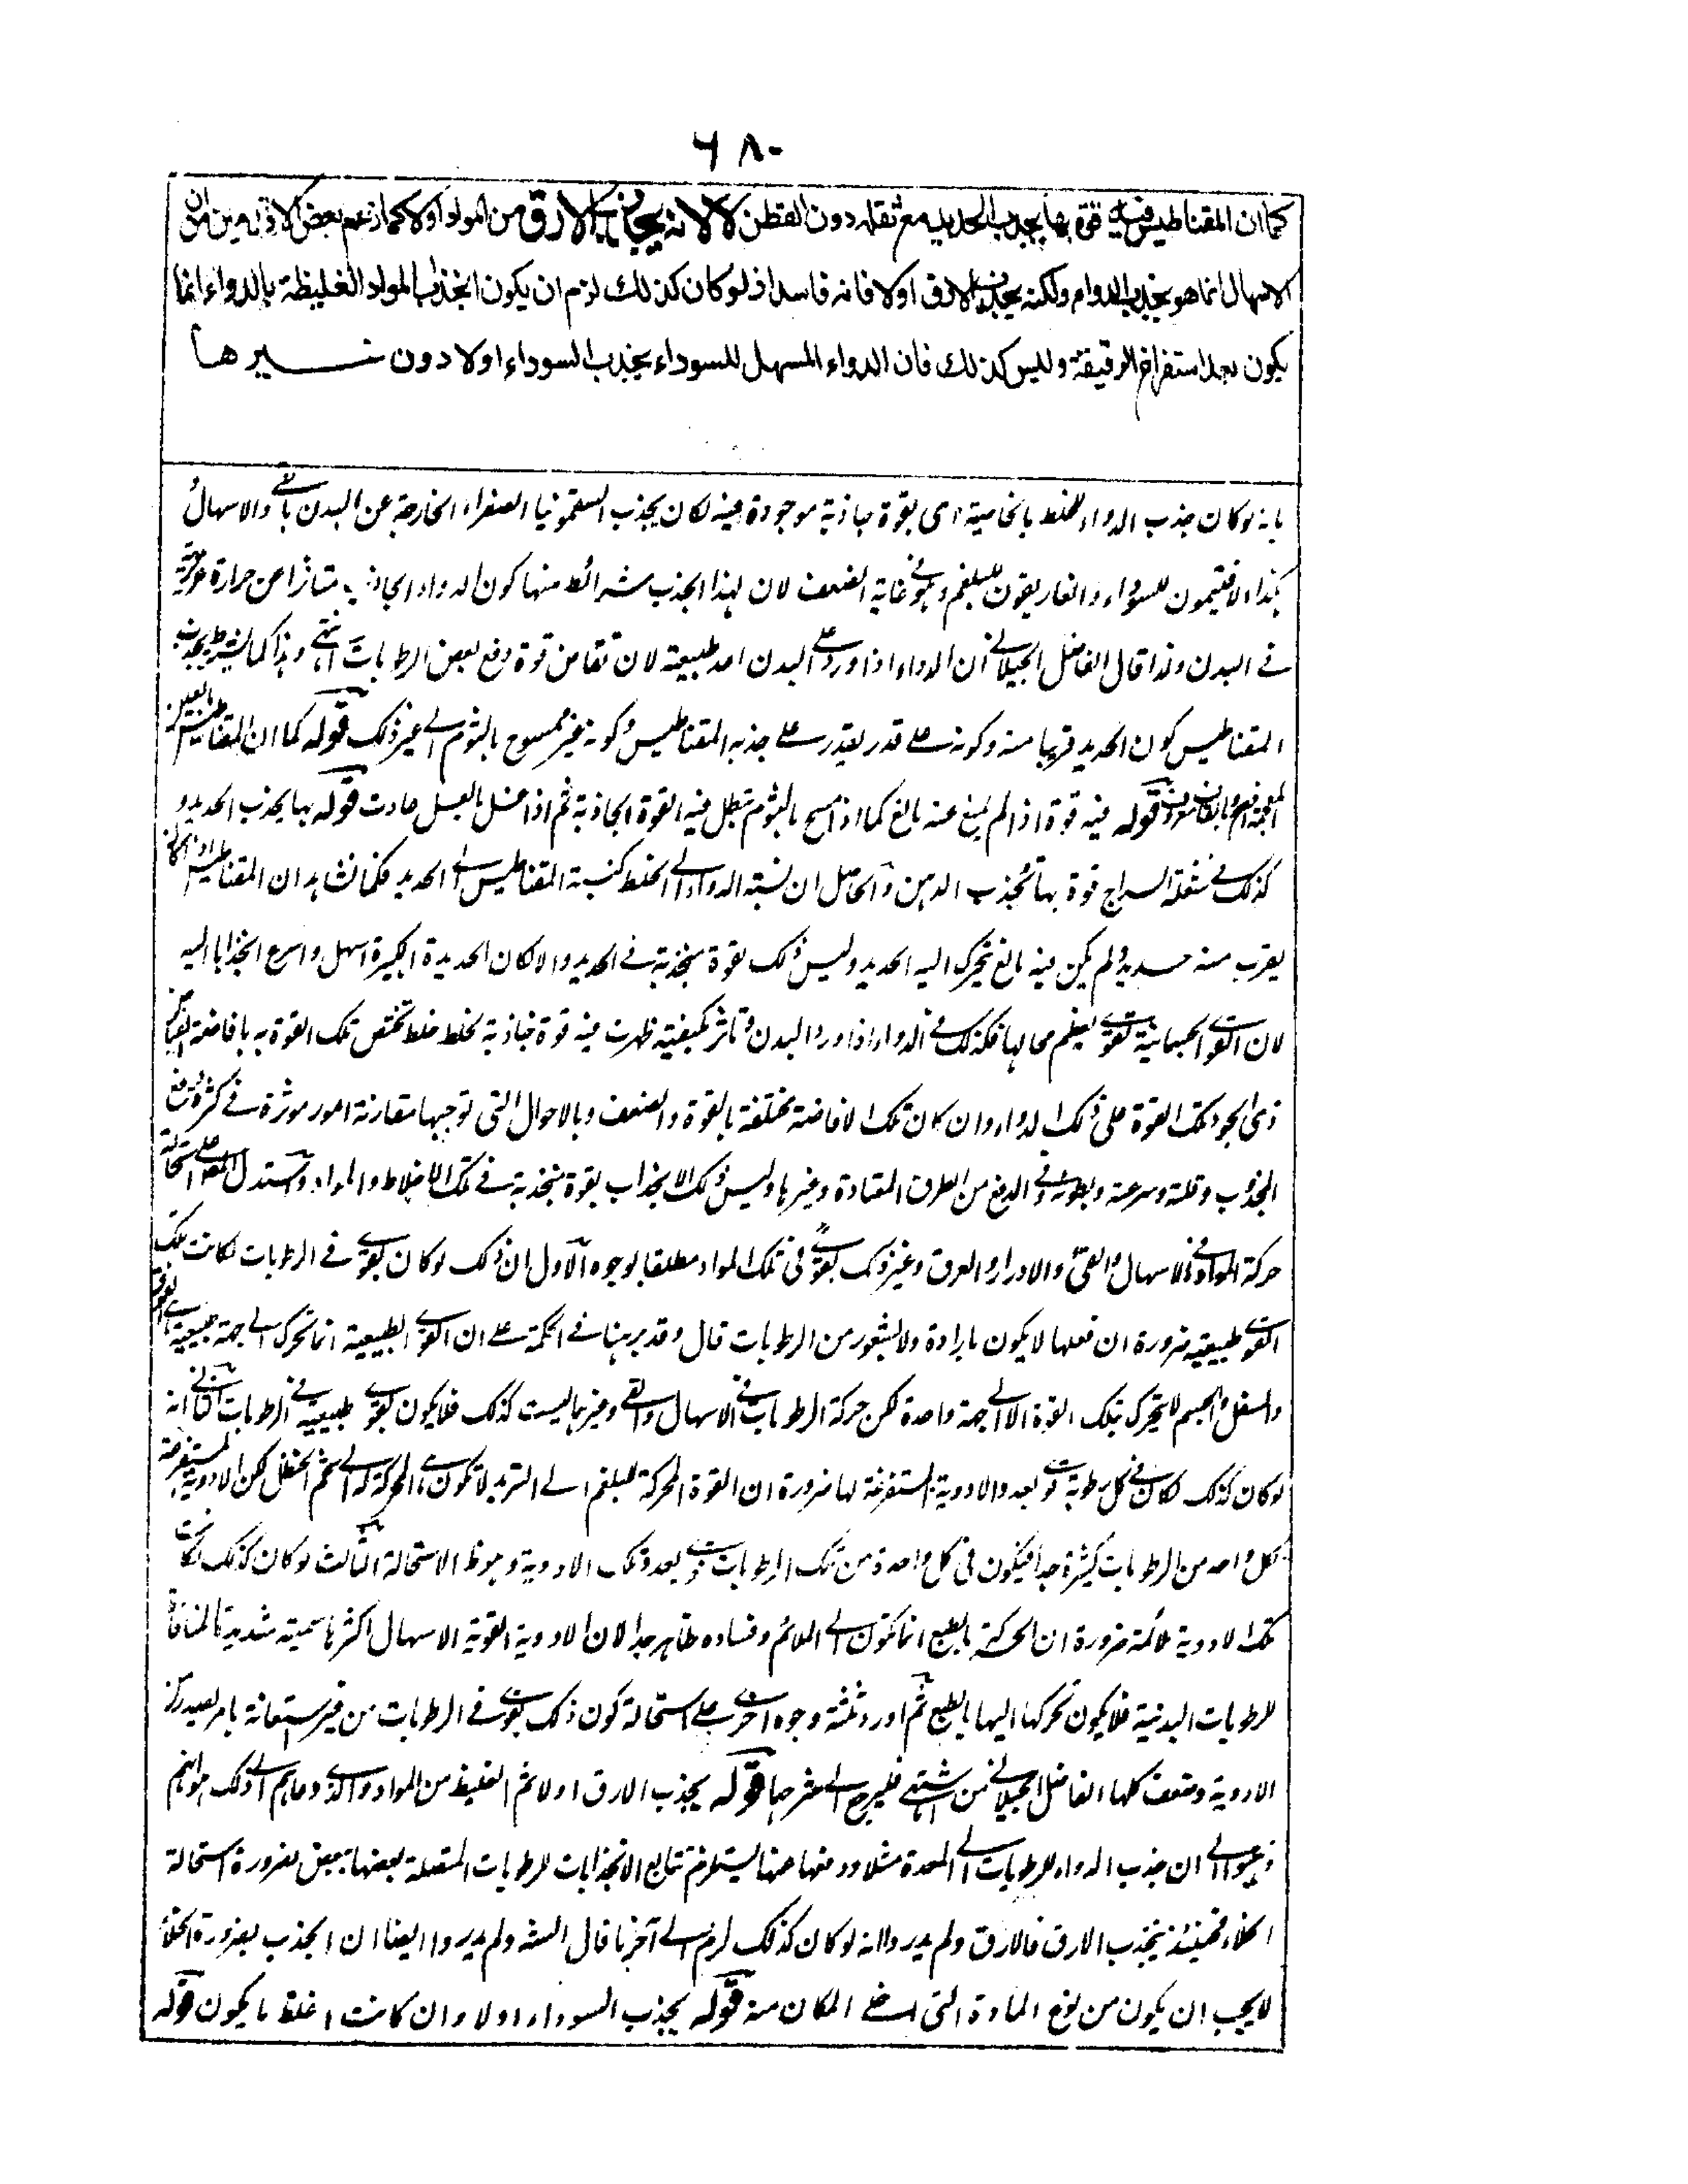 ۶۸۰
كما ان المقناطيس فيه قوة بها يجذب الحديد مع ثقله دون القطن لا لانه يجذب الارق من المواد اولا كما زعم بعض الاقدمين من ان
الاسهال انما هو بجذب الدواء ولكنه يجذب الارق اولا فانه فاسد اذ لو كان كذلك لزم ان يكون انجذاب المواد الغليظة بالدواء انما
يكون بعد استفراغ الرقيقة وليس كذلك فان الدواء المسهل للسوداء يجذب السوداء اولا دون غيرها
بانه لو كان جذب الدواء للخلط بالخاصية اى بقوة جاذبة موجودة فيه لكان يجذب السقمونيا الصفراء الخارجة عن البدن والاسهال
كذا الافتيمون للسوداء والغاريقون للبلغم وهو فى غاية الضعف لان لهذا الجذب شرائط منها كون الدواء الجاذب متاثرا عن حرارة غريزية
فى البدن ولذا قال الفاضل الجيلانى ان الدواء اذا ورد على البدن طبيعة لان قوة دفع بعض الرطوبات انتهى وهذا كما يشترط بجذب
المقناطيس كون الحديد قريبا منه وكونه على قدر يقدر على جذبه المقناطيس وكونه غير ممسوح بالثوم الى غير ذلك قوله كما ان المقناطيس
قوله فيه قوة اذا لم يمنع عنه مانع كما اذا مسح بالثوم تبطل فيه القوة الجاذبة ثم اذا غسل بالعسل عادت قوله بها يجذب الحديد و
كذلك فى شعلة السراج قوة بها تجذب الدهن والحاصل ان نسبة الدواء الى الخلط كنسبة المقناطيس الى الحديد فكما نشاهد ان المقناطيس اذا كان
يقرب منه حديد ولم يكن فيه مانع تحرك اليه الحديد وليس ذلك بقوة منجذبة فى الحديد والا لكان الحديدة الكبيرة اسهل واسرع انجذابا اليه
لان القوى الجسمانية تقوى بعظم محالها فكذلك فى الدواء اذا ورد البدن وتاثر بكيفيته ظهرت فيه قوة جاذبة لخلط خلط تختص تلك القوة به بافاضة
ذى الجود تلك القوة على ذلك الدواء وان كان تلك الافاضة مختلفة بالقوة والضعف وبالاحوال التى توجبها مقارنة امور موثرة فى كثرة
المجذوب وقلته وسرعته وبطوئه وفى الدفع من الطرق المعتادة وغيرها وليس ذلك الانجذاب بقوة منجذبة فى تلك الاخلاط والمواد واستدل على استحالة
حركة المواد فى الاسهال والقئ والادرار والعرق وغير ذلك بقوى فى تلك المواد مطلقا بوجوه الاول ان ذلك لو كان بقوى فى الرطوبات لكانت تلك
القوى طبيعية ضرورة ان فعلها لا يكون بارادة ولا بشعور من الرطوبات قال وقد برهنا فى الحكمة على ان القوى الطبيعية انما تحرك الى جهة
والسفل والجسم لا يتحرك بتلك القوة الا الى جهة واحدة لكن حركة الرطوبات فى الاسهال والقئ وغيرهما ليست كذلك فلا يكون بقوى طبيعية فى الرطوبات الثانى انه
لو كان كذلك لكان فى كل رطوبة قوى بعدد الادوية المستفرغة لها ضرورة ان القوة المحركة للبلغم الى التربد لا تكون هى المحركة له الى شحم الحنظل لكن الادوية المستفرغة
لكل واحد من الرطوبات كثيرة جدا فيكون فى كل واحدة من تلك الرطوبات قوى بعدد تلك الادوية وهو ظ الاستحالة الثالث لو كان كذلك لكانت
تلك الادوية ملائمة ضرورة ان الحركة بالطبع انما تكون الى الملائم وفساده ظاهر جدا لان الادوية القوية الاسهال اكثرها سمية شديدة المنافاة
للرطوبات البدنية فلا يكون تحركها اليها بالطبع ثم اورد ثلثة وجوه اخرى على استحالة كون ذلك بقوى فى الرطوبات من غير استعانة بامر يصدر من
الادوية وضعف كلها الفاضل الجيلانى فليرجع الى شرحها قوله يجذب الارق اولا ثم الغليظ من المواد والذى دعاهم الى ذلك هو انهم
ذهبوا الى ان جذب الدواء للرطوبات الى المعدة مثلا ودفعها عنها يستلزم تتابع الانجذابات للرطوبات المتصلة بعضها ببعض بضرورة استحالة
الخلاء فحينئذ ينجذب الارق فالارق ولم يدروا انه لو كان كذلك لزم الى آخر ما قال الشه ولم يدروا ايضا ان الجذب بضرورة الخلاء
لا يجب ان يكون من نوع المادة التى اخلى المكان منه قوله يجذب السوداء اولا وان كانت اغلظ ما يكون قوله